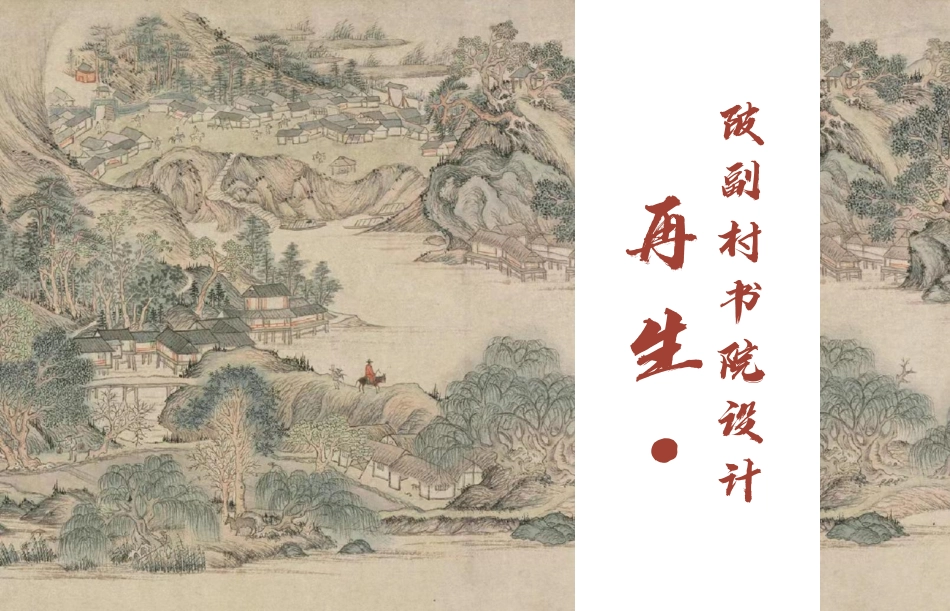 陂副村书院设计
再生·